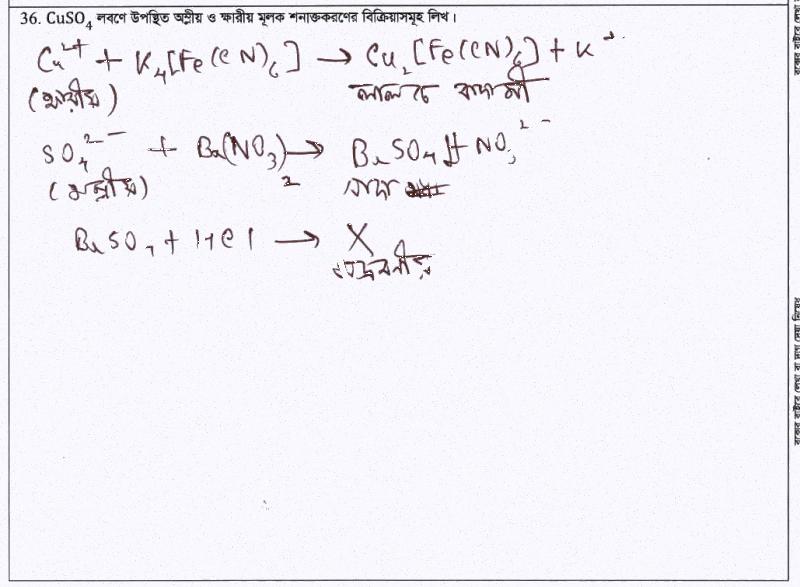 36. CuSO₄ লবণে উপস্থিত অম্লীয় ও ক্ষারীয় মূলক শনাক্তকরণের বিক্রিয়াসমূহ লিখ।
Cu²⁺ + K₄[Fe(CN)₆] → Cu₂[Fe(CN)₆] + K⁺
(ক্ষারীয়) লালচে বাদামী
SO₄²⁻ + Ba(NO₃)₂ → BaSO₄↓ + NO₃²⁻
(অম্লীয়) সাদা
BaSO₄ + HCl → X
অদ্রবনীয়